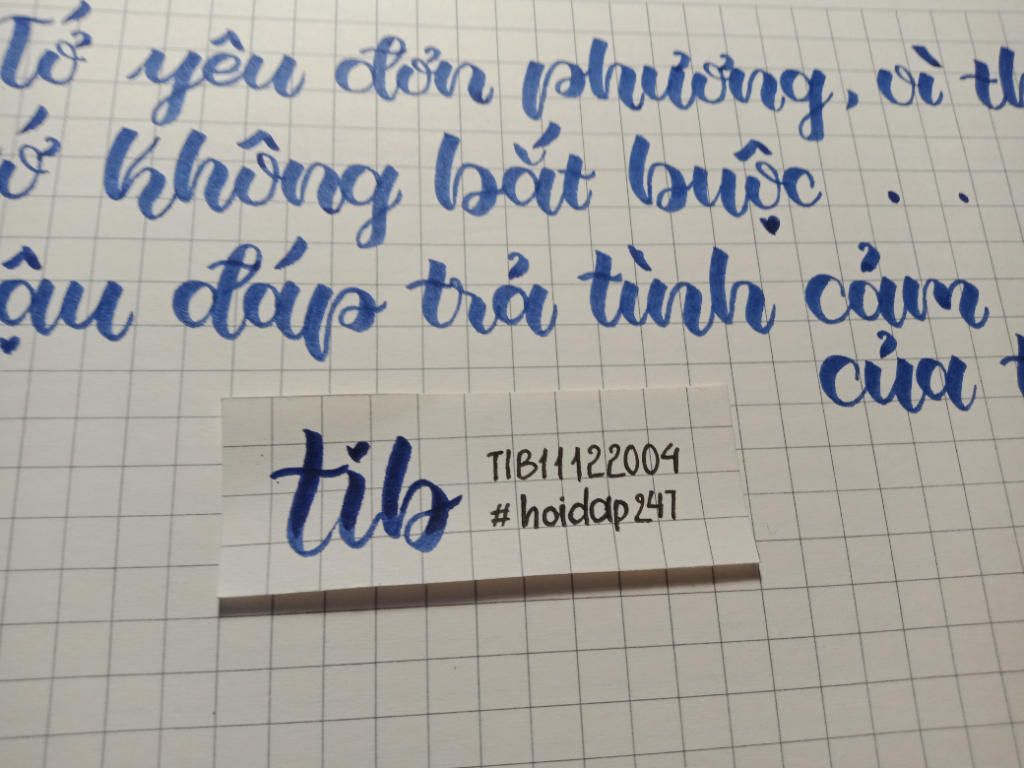 Tớ yêu đơn phương, vì th
ớ không bắt buộc . .
ậu đáp trả tình cảm
của t
tib
TIB11122004
#hoidap247